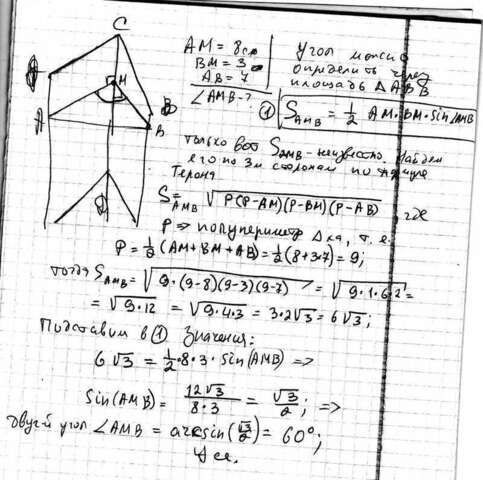 C
M
A
B
B
AM = 8см
BM = 3
AB = 7
∠AMB-?
Угол можно
определить через
площадь Δ
① S_AMB = 1/2 AM·BM·sin∠AMB
только вот S_AMB - неизвестно. Найдем
его по 3м сторонам по формуле
Герона
S_AMB = √P(P-AM)(P-BM)(P-AB), где
P => полупериметр Δка, т.е.
P = 1/2 (AM+BM+AB) = 1/2 (8+3+7) = 9;
тогда S_AMB = √9·(9-8)(9-3)(9-7) = √9·1·6·2 =
= √9·12 = √9·4·3 = 3·2√3 = 6√3;
Подставим в ① значения:
6√3 = 1/2·8·3·sin(AMB) =>
sin(AMB) = 12√3/8·3 = √3/2; =>
двугр. угол ∠AMB = arcsin(√3/2) = 60°;